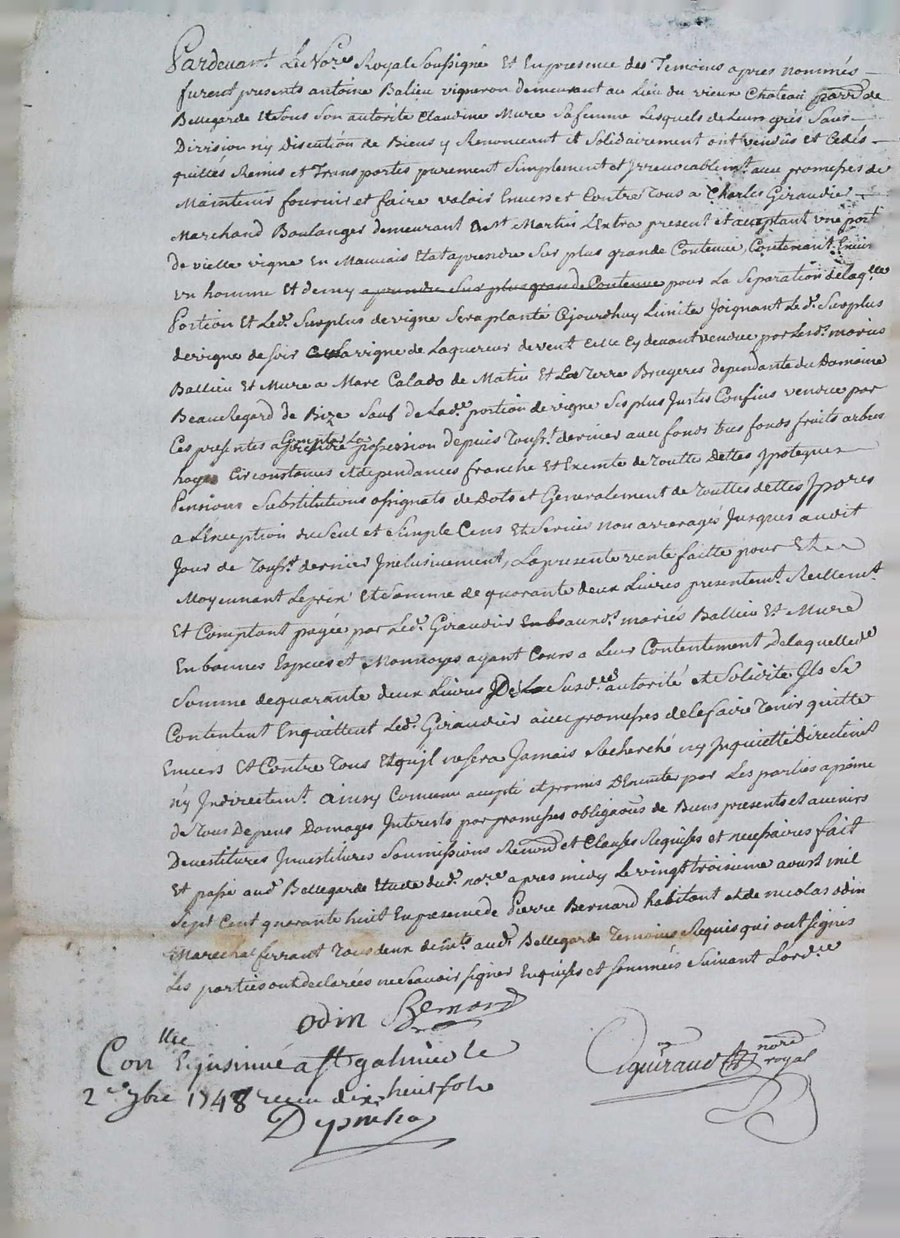 Pardevant Le No.re Royal Soussigné Et En presence des Temoins apres nommés
furent presents antoine Balieu vigneron demeurant au Lieu du vieux Chateau parr.e de
Bellegarde Et sous son autorité Claudine Mure sa femme Lesquels de Leurs grés Sans
Division n'y Discution de Biens y Renoncant et Solidairement ont vendus et Cedés
quittés Remis et Transportés purement Simplement et Irrevocablem.t avec promesses de
Maintenir fournir et faire valoir Envers et Contre Tous a Charles Giraudier
Marchand Boulanger demeurant a St Martin Lextra present et acceptant une port
de vielle vigne En Mauvais Etat aprendre sur plus grande Contenue, Contenant Envir
un homme Et demy aprendre Sur plus grande Contenue pour La Separation delaq.lle
Portion Et Led. Surplus de vigne Sera planté Cejourdhuy Limites Joignant Led. Surplus
de vigne de soir La vigne de Laquereur de vent Celle Cy devant vendue par Lesd. maries
Ballieu Et Mure a Marc Calado de Matin Et La Terre Bruyeres dependante du Domaine
Beau Regard de Bize Sauf de Lad.e portion de vigne Ses plus Justes Confins vendue par
Ces presentes a Compter La possession depuis Touss.t dernier avec fonds tres fonds fruits arbres
hayes Circonstances et dependances franche Et Exemte de Toutte Dettes ypoteques
Pensions Substitutions assignats de Dots et Generalement de Touttes dettes
a L'Exception du Seul et Simple Cens Et Servis non arreragé Jusques audit
Jour de Touss.t dernier Inclusivement, La presente vente faitte pour Et
Moyennant Le prix Et Somme de quarante deux Livres presentem.t Reellem.t
Et Comptant payée par Led. Giraudier ausd. mariés Ballieu Et Mure
En bonnes Especes et Monnoyes ayant Cours a Leur Contentement De laquelle d.e
Somme de quarante deux Livres De La Susd.e autorité et Solidité Ils Se
Contentent Enquittent Led. Giraudier avec promesses de le faire Tenir quitte
Envers Et Contre Tous Et quil ne sera Jamais Recherché ny Inquietté Directem.t
n'y Indirectem.t ainsy Convenu accepté et promis par Les parties a peine
de Tous Depens Domages Interests par promesses obliga.ons de Biens presents et avenirs
Devestitures Investitures Soumissions Renon.ons et Clauses Requises et necessaires fait
Et passé aud. Bellegarde Etude dud. no.re apres midy Le vingt troisieme aoust mil
Sept Cent quarante huit En presence de Pierre Bernard habitant et de nicolas odin
Marechal ferrant Tous deux dem.ts aud. Bellegarde Temoins Requis qui ont signés
Les parties ont declarées ne Scavoir signer Enquises et Sommées Suivant Lord.ce
odin Bernard
Con.lle Et insinué a St galmier le
2.e 7bre 1748 recu dix huit sols
nore royal